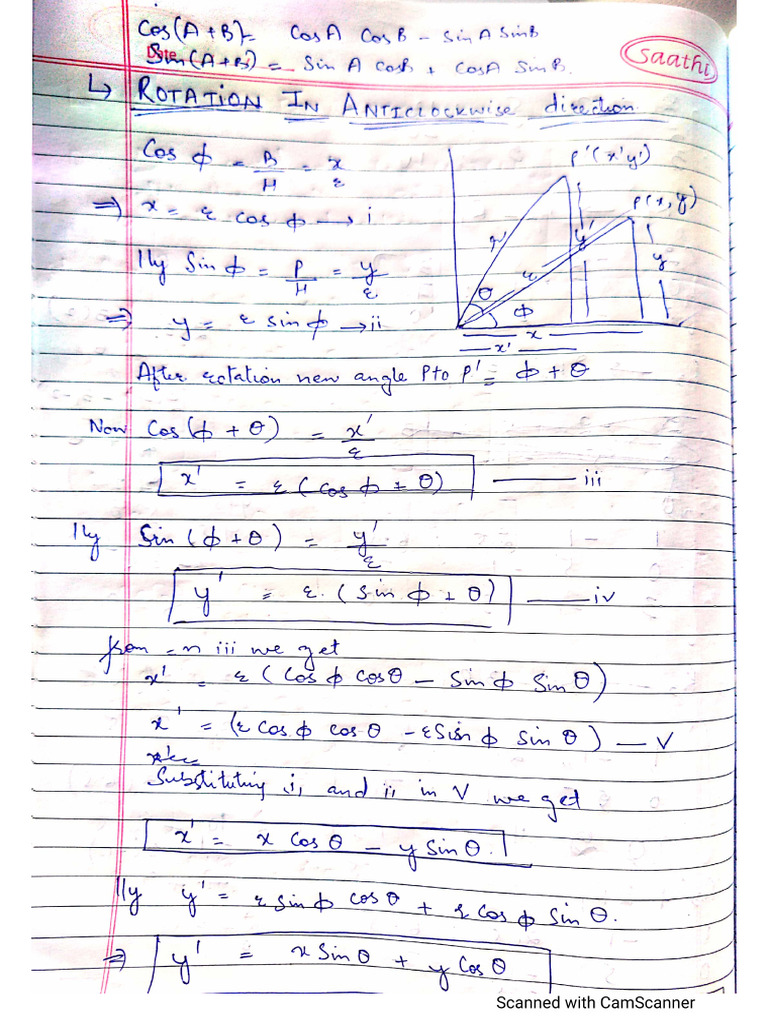 Cos(A+B) = CosA CosB - SinA SinB
Date
Sin(A+B) = Sin A cosB + CosA SinB.
Saathi
↳ ROTATION IN ANTICLOCKWISE direction
Cos ϕ = B/H = x/r
P'(x'y')
P(x,y)
⇒ x = r cos ϕ → i
r
r
y'
y
θ
ϕ
x
x'
||ly Sin ϕ = P/H = y/r
⇒ y = r sin ϕ → ii
After rotation new angle P to P' = ϕ + θ
Now Cos(ϕ + θ) = x'/r
x' = r (cos ϕ + θ) — iii
||ly Sin (ϕ + θ) = y'/r
y' = r. (sin ϕ + θ) — iv
from =n iii we get
x' = r (Cos ϕ cosθ - Sin ϕ Sin θ)
x' = (r Cos ϕ cos θ - r Sin ϕ sin θ) — V
Substituting i, and ii in V we get
x' = x Cos θ - y Sin θ.
||ly y' = r sin ϕ cos θ + r Cos ϕ Sin θ.
⇒ y' = x Sin θ + y Cos θ
Scanned with CamScanner